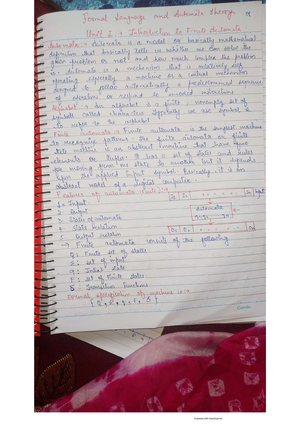 Formal language and automata theory
Unit 1 : Introduction to Finite Automata
Automata : Automata is a model or basically mathematical
definition that basically tells us whether we can solve the
given problem or not and how much complex the problem
is. Automata is a mechanism that is relatively self
operating, represents a machine or a control mechanism
designed to follow automatically a predetermined sequence
of operations or respond to encoded instructions
Alphabet : An alphabet is a finite, nonempty set of
symbols called characters. Typically we use symbol Σ
to refer to the alphabet
Finite Automata : Finite automata is the simplest machine
to recognize patterns. The finite automata or finite
state machine is an abstract machine that have five
elements or tuples. It has a set of states and rules
for moving from one state to another but it depends
upon the applied input symbol. Basically it is an
abstract model of a digital computer.
Features of automata
1 → Input
2 Output
3 States of automata
4 State relation
5 Output relation
automata
→ Finite automata consists of the following
Q : Finite set of states
Σ : set of input
q : Initial state
F : set of Finite states
δ : Transition function
Formal specification of machine is :
{ Q, Σ, q, F, δ }